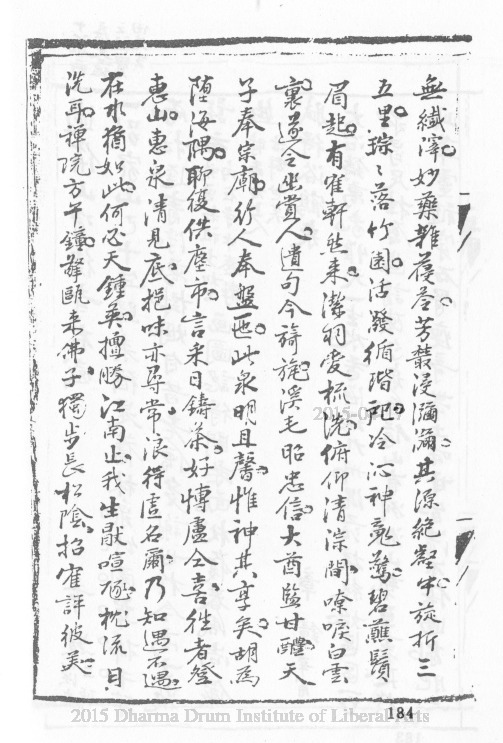 無纖滓妙藥雜茯苓芳叢浸瀰瀰其源絕壑中旋折三
五里琮々落竹園活潑循階所冷沁神亮驚碧蘸鬚
眉起有崔軒然來潔羽愛梳洗俯仰清淙間嘹唳白雲
裏遂令坐賞人遺句今旖旎溪毛昭忠信大酋監甘醴天
子奉宗廟行人奉盤匜此泉明且馨惟神其享矣胡為
墮海隅聊復佚塵市言采日鑄茶好慱盧仝喜往者登
惠山惠泉清見底挹味亦尋常浪得虛名爾乃知遇不遇
在水猶如此何必天鍾英擅勝江南止我生厭喧豗枕流日
洗耳禪院方午鐘群鷗來佛子獨步長松陰招崔評彼美
184
2015 Dharma Drum Institute of Liberal Arts